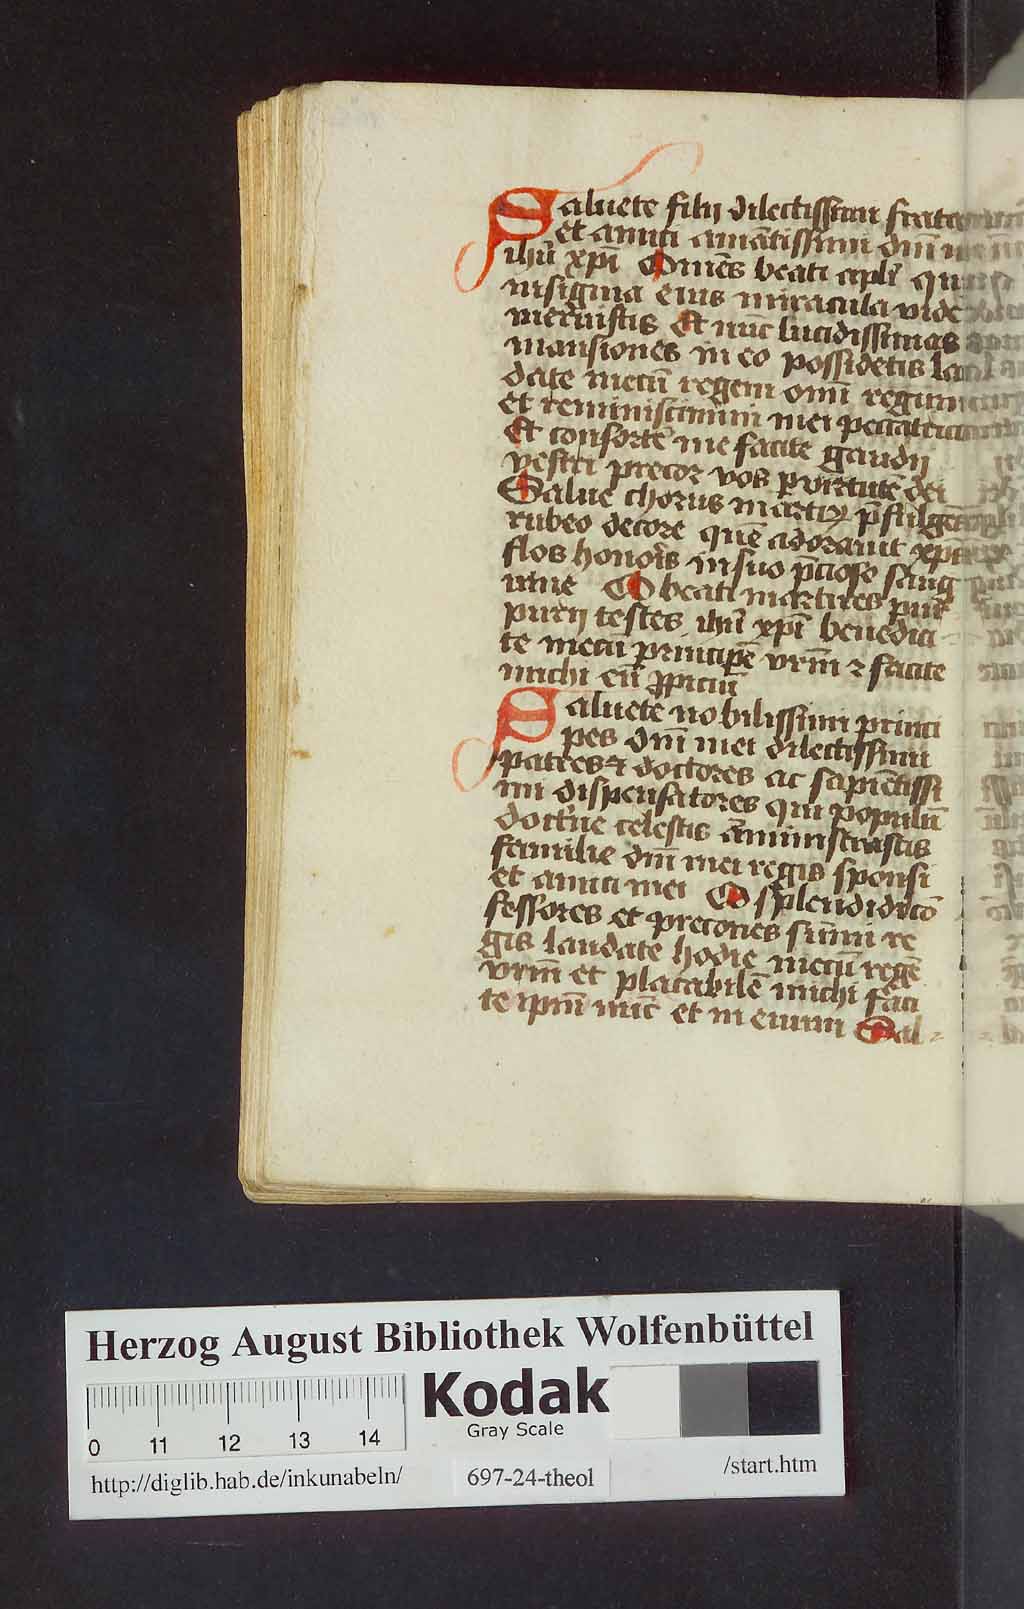 Saluete filij dilectissimi fratres
et amici amātissimi dnī
ihū xpī O mēs beati apli qui
insignia eius miracula vide
meruistis Et nūc lucidissimas
mansiones in eo possidetis lau
date mecū regem omī regum
et reminiscimini mei peccatricis
Et consortē me facite gaudij
vestri precor vos p virtutē dei
Salue chorus martiꝝ p̄fulgēs
rubeo decore quē adorauit xp̄c
flos honoris in suo p̄cioso sang
uine O beati martires pur
purij testes ihū xpī benedici
te mecū principē vrm̄ ⁊ facite
michi eū ꝓpiciū
Saluete nobilissimi princi
pes dnī mei dilectissimi
patres ⁊ doctores ac sapiētissi
mi dispensatores qui populū
doctrīe celestis āministrastis
familie dnī mei regis sponsi
et amici mei O splendidi cō
fessores et precones sūmi re
gis laudate hodie mecū regē
vrm̄ et placabilē michi faci
te ipm̄ nūc et in euum Sal
Herzog August Bibliothek Wolfenbüttel
Kodak
Gray Scale
0 11 12 13 14
http://diglib.hab.de/inkunabeln/
697-24-theol
/start.htm